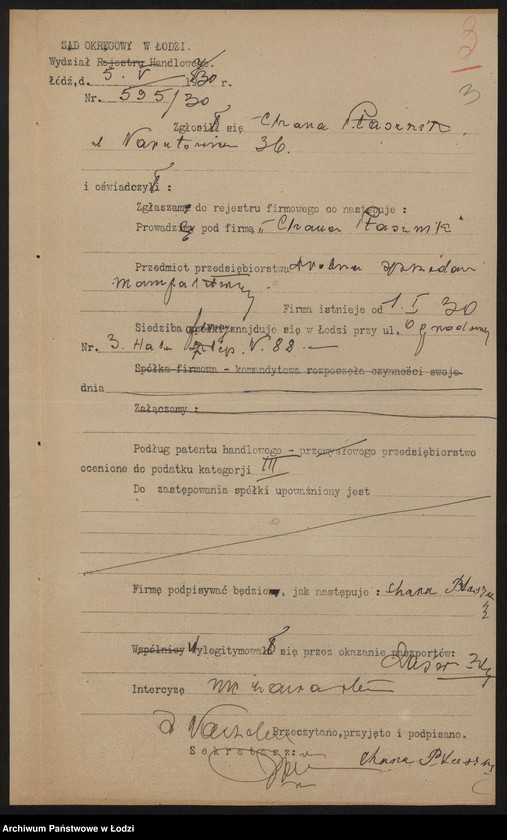 3
3
SĄD OKRĘGOWY W ŁODZI.
Wydział Rejestru Handlowego.
Łódź, d. 5. V 1930 r.
Nr. 595/30
Zgłosił się Chana Ptasznik
i oświadczył :
Zgłaszam do rejestru firmowego co następuje :
Prowadzę pod firmą „Chana Ptasznik"
Przedmiot przedsiębiorstwa
Firma istnieje od 1. I 30
Siedziba znajduje się w Łodzi przy ul. Ogrodowej
Nr. 3. Hala sklep. N. 82. —
Spółka firmowa - komandytowa rozpoczęła czynności swoje
dnia
Załączamy :
Podług patentu handlowego - przemysłowego przedsiębiorstwo
ocenione do podatku kategorji III
Do zastępowania spółki upoważniony jest
Firmę podpisywać będzie, jak następuje : Chana
Wspólnicy wylegitymował się przez okazanie paszportów:
Intercyzę nie zawarłem
Przeczytano, przyjęto i podpisano.
Sekretarz:
Chana
Archiwum Państwowe w Łodzi